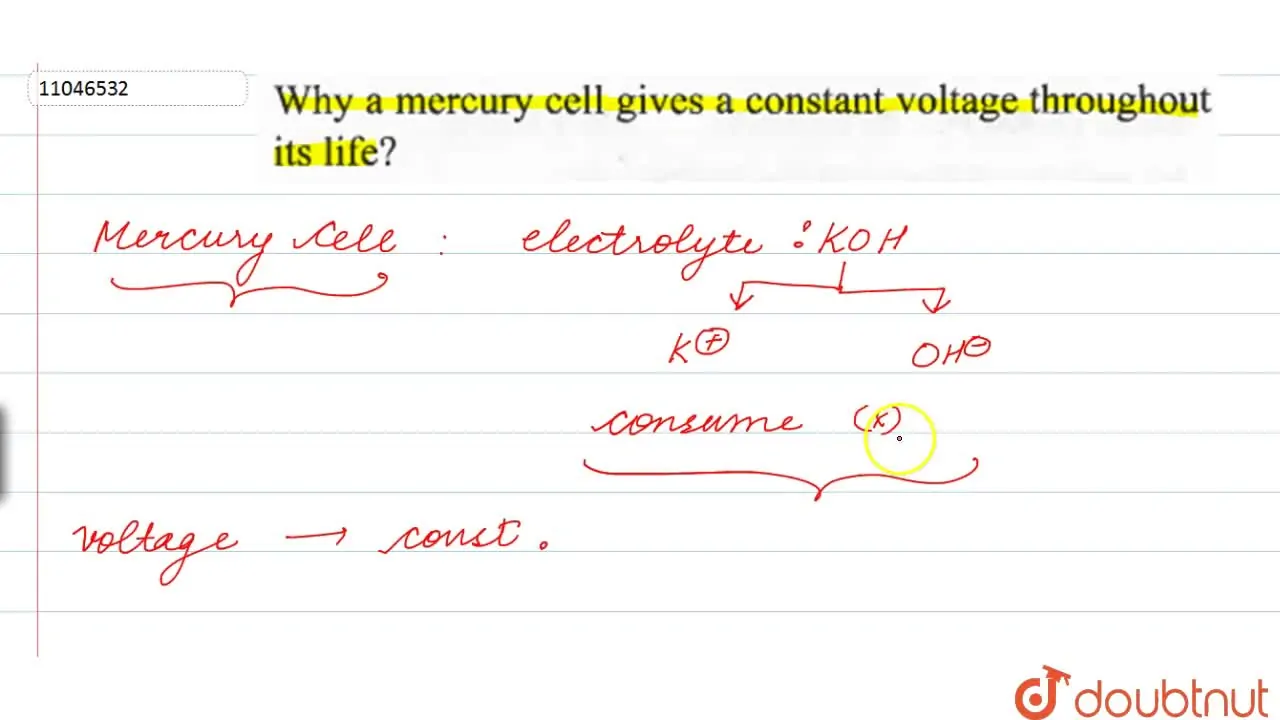 11046532
Why a mercury cell gives a constant voltage throughout
its life?
Mercury Cell : electrolyte : KOH
K⊕ OH⊖
consume (x)
voltage → const.
doubtnut